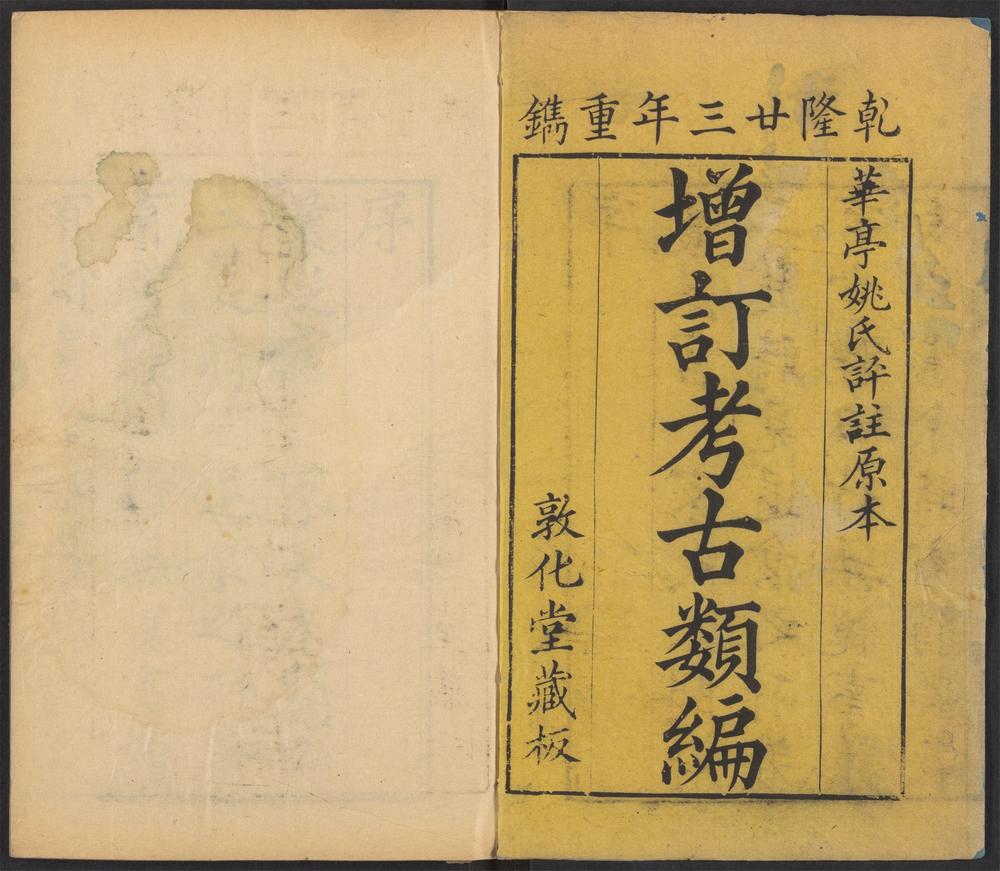 乾隆廿三年重鐫
華亭姚氏評註原本
增訂考古類編
敦化堂藏板
序